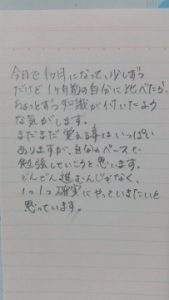 今日で1ヶ月になって、少しずつ
だけど1ヶ月前の自分に比べたら
ちょっとずつ知識が付いたよう
な気がします。
まだまだ覚える事はいっぱい
ありますが、自分のペースで
勉強していこうと思います。
どんどん進むんじゃなく、
1つ1つ確実にやっていきたいと
思っています。